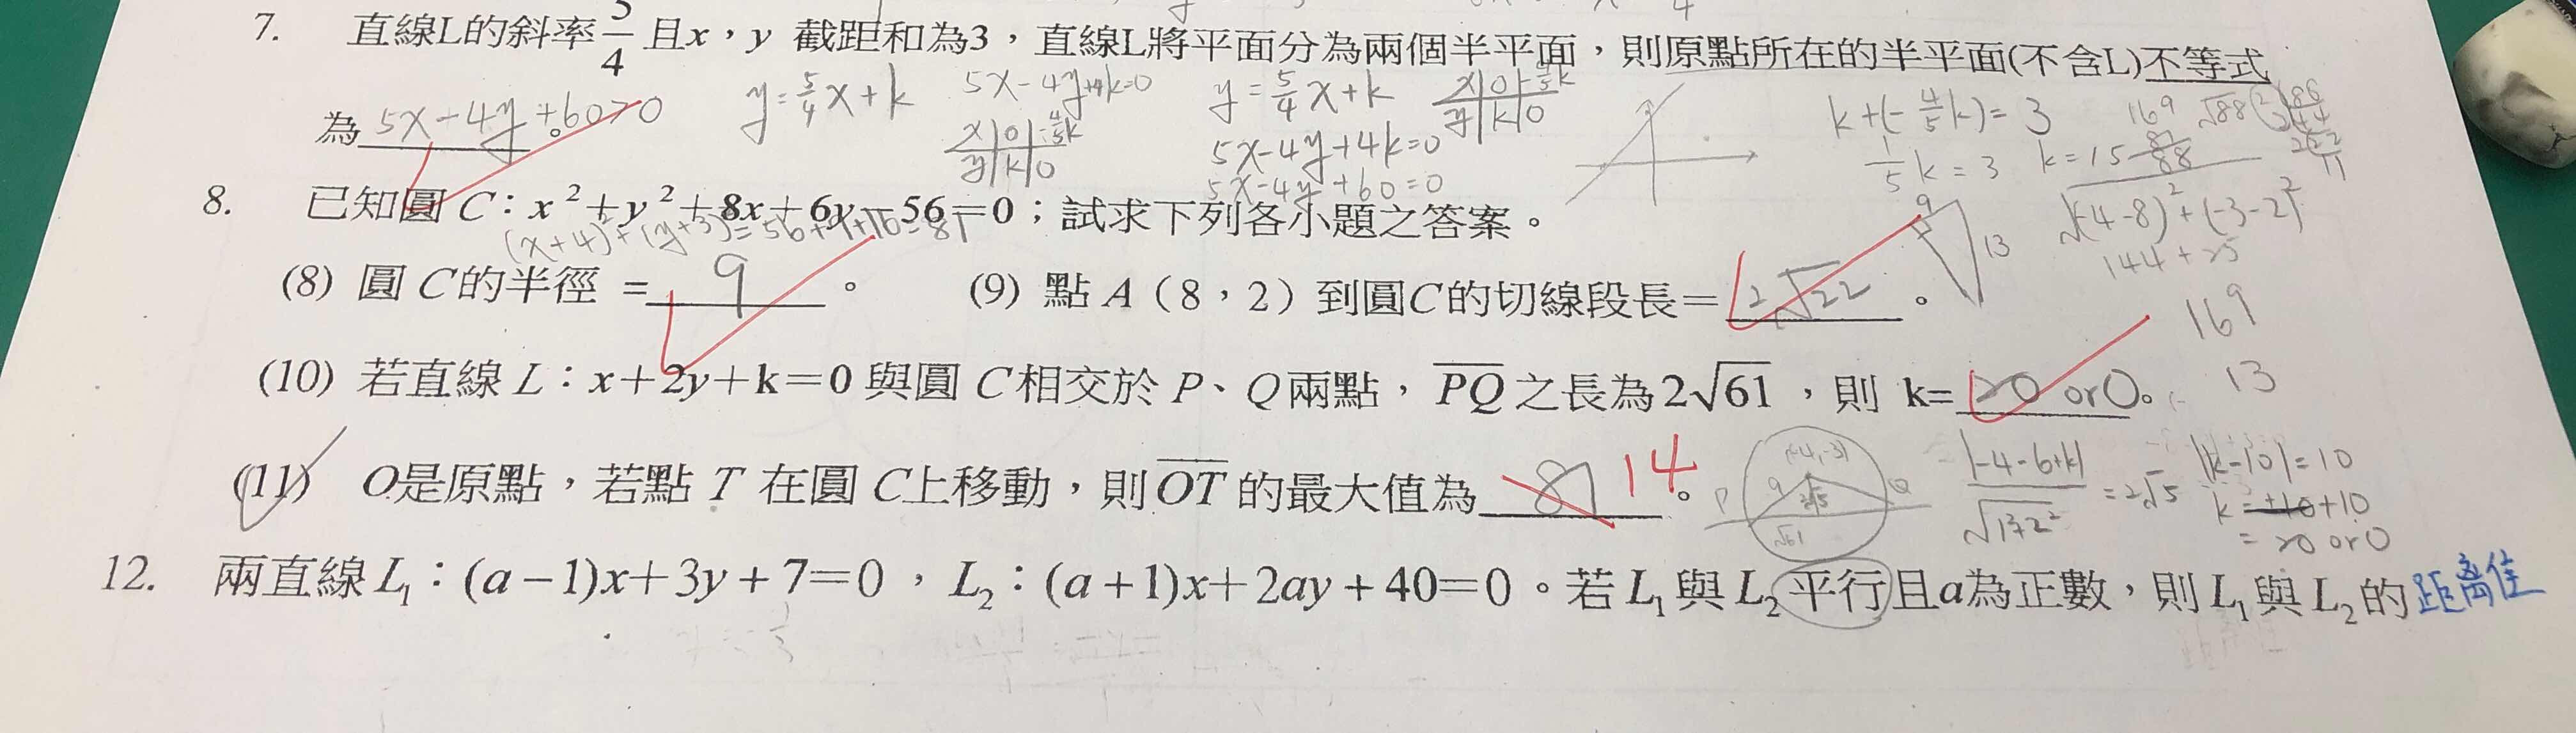 7. 直線L的斜率5/4且x，y 截距和為3，直線L將平面分為兩個半平面，則原點所在的半平面(不含L)不等式
y=5/4x+k 5x-4y+4k=0 y=5/4x+k x 0 -4/5k
y k 0
k+(-4/5k)=3 169 √88
為 5x-4y+60>0 。
x 0 -4/5k
y k 0
5x-4y+4k=0
1/5k=3 k=15 81
88
5x-4y+60=0
8. 已知圓 C：x²+y²+8x+6y-56=0；試求下列各小題之答案。
(x+4)²+(y+3)²=56+9+16=81
9 13
√(-4-8)²+(-3-2)²
144+25
(8) 圓 C的半徑 = 9 。 (9) 點 A（8，2）到圓C的切線段長= 2√22 。
169
13
(10) 若直線 L：x+2y+k=0 與圓 C 相交於 P、Q兩點，PQ之長為2√61，則 k= 20 or 0。
(11) O是原點，若點 T 在圓 C上移動，則OT的最大值為 81 14。
(-4,-3) P 9 2√5 Q √61
|-4-6+k|/√1²+2² =2√5 |k-10|=10
k=±10+10
=20 or 0
12. 兩直線L₁：(a-1)x+3y+7=0，L₂：(a+1)x+2ay+40=0。若L₁與L₂平行且a為正數，則L₁與L₂的距離佳